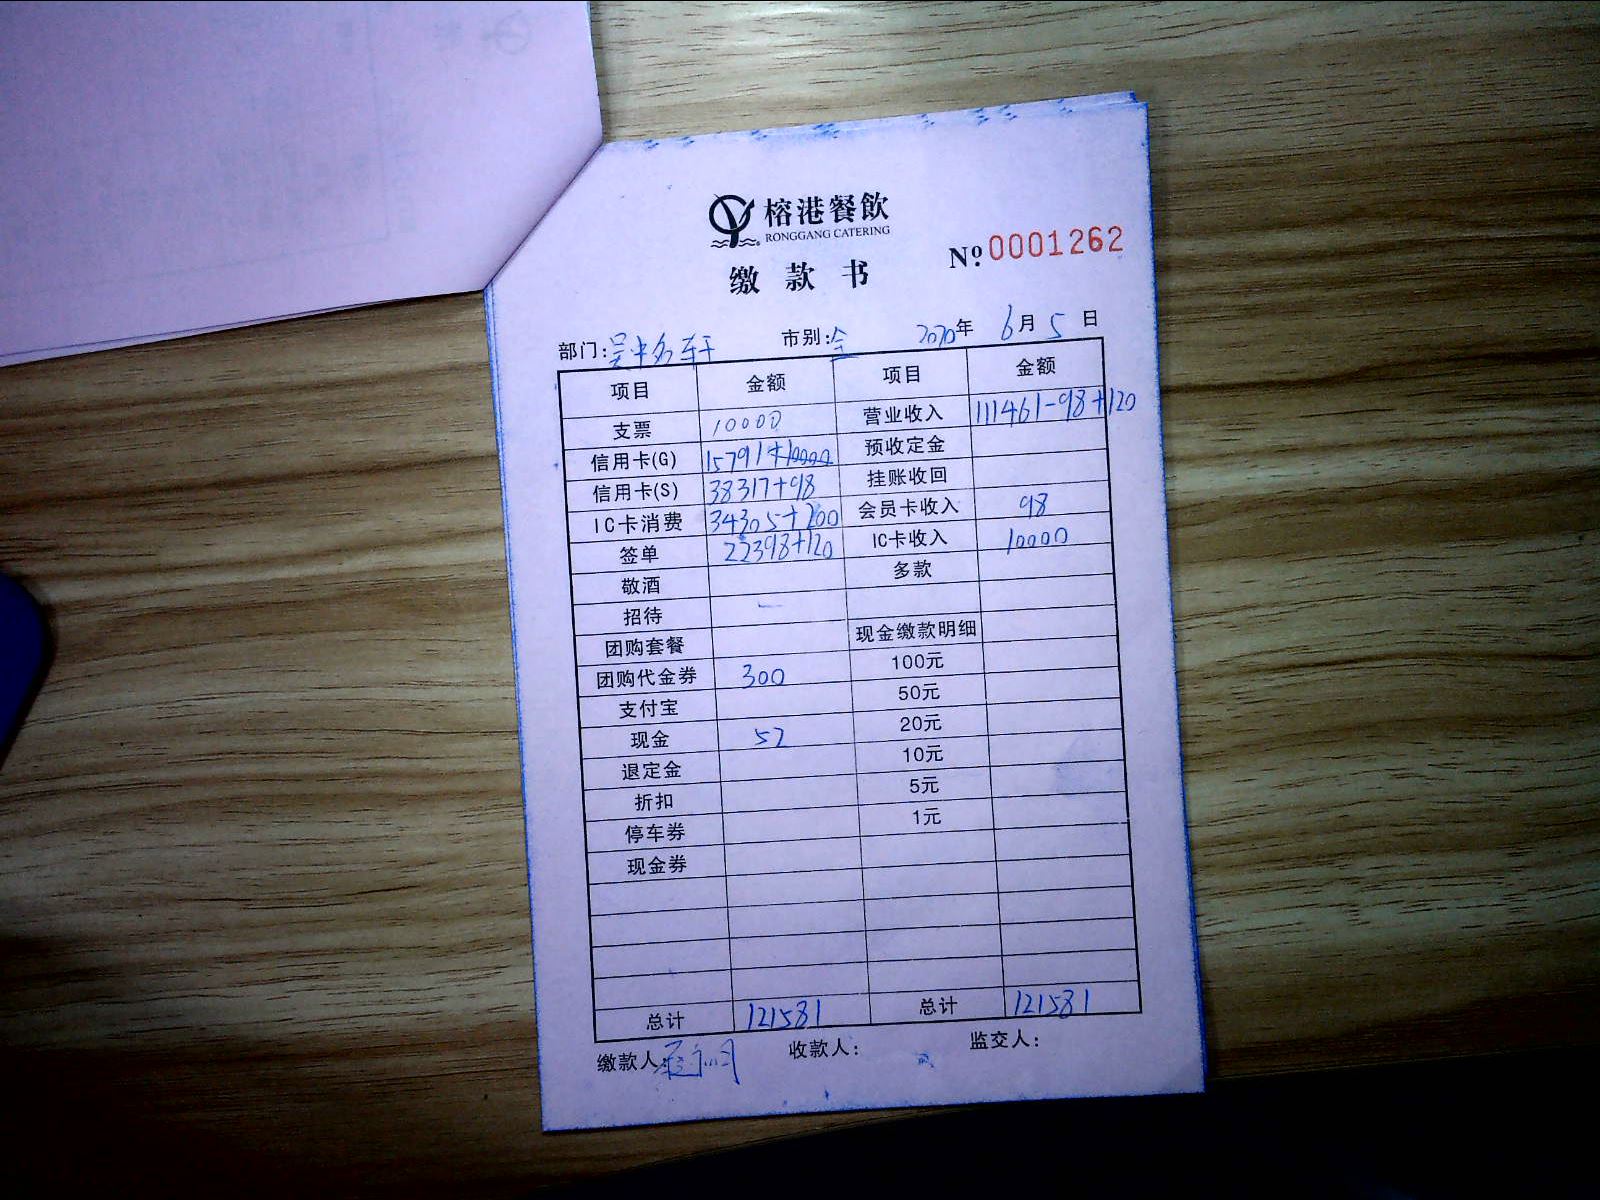 榕港餐飲
RONGGANG CATERING
缴款书
№ 0001262
部门:吴中名轩 市别:全 2020年 6月 5日
项目 金额 项目 金额
支票 10000 营业收入 111461-98+120
信用卡(G) 15791+10000 预收定金
信用卡(S) 38317+98 挂账收回
IC卡消费 34305+200 会员卡收入 98
签单 22398+120 IC卡收入 10000
敬酒 多款
招待 一
团购套餐 现金缴款明细
团购代金券 300 100元
支付宝 50元
现金 52 20元
退定金 10元
折扣 5元
停车券 1元
现金券
总计 121581 总计 121581
缴款人: 收款人: 监交人: